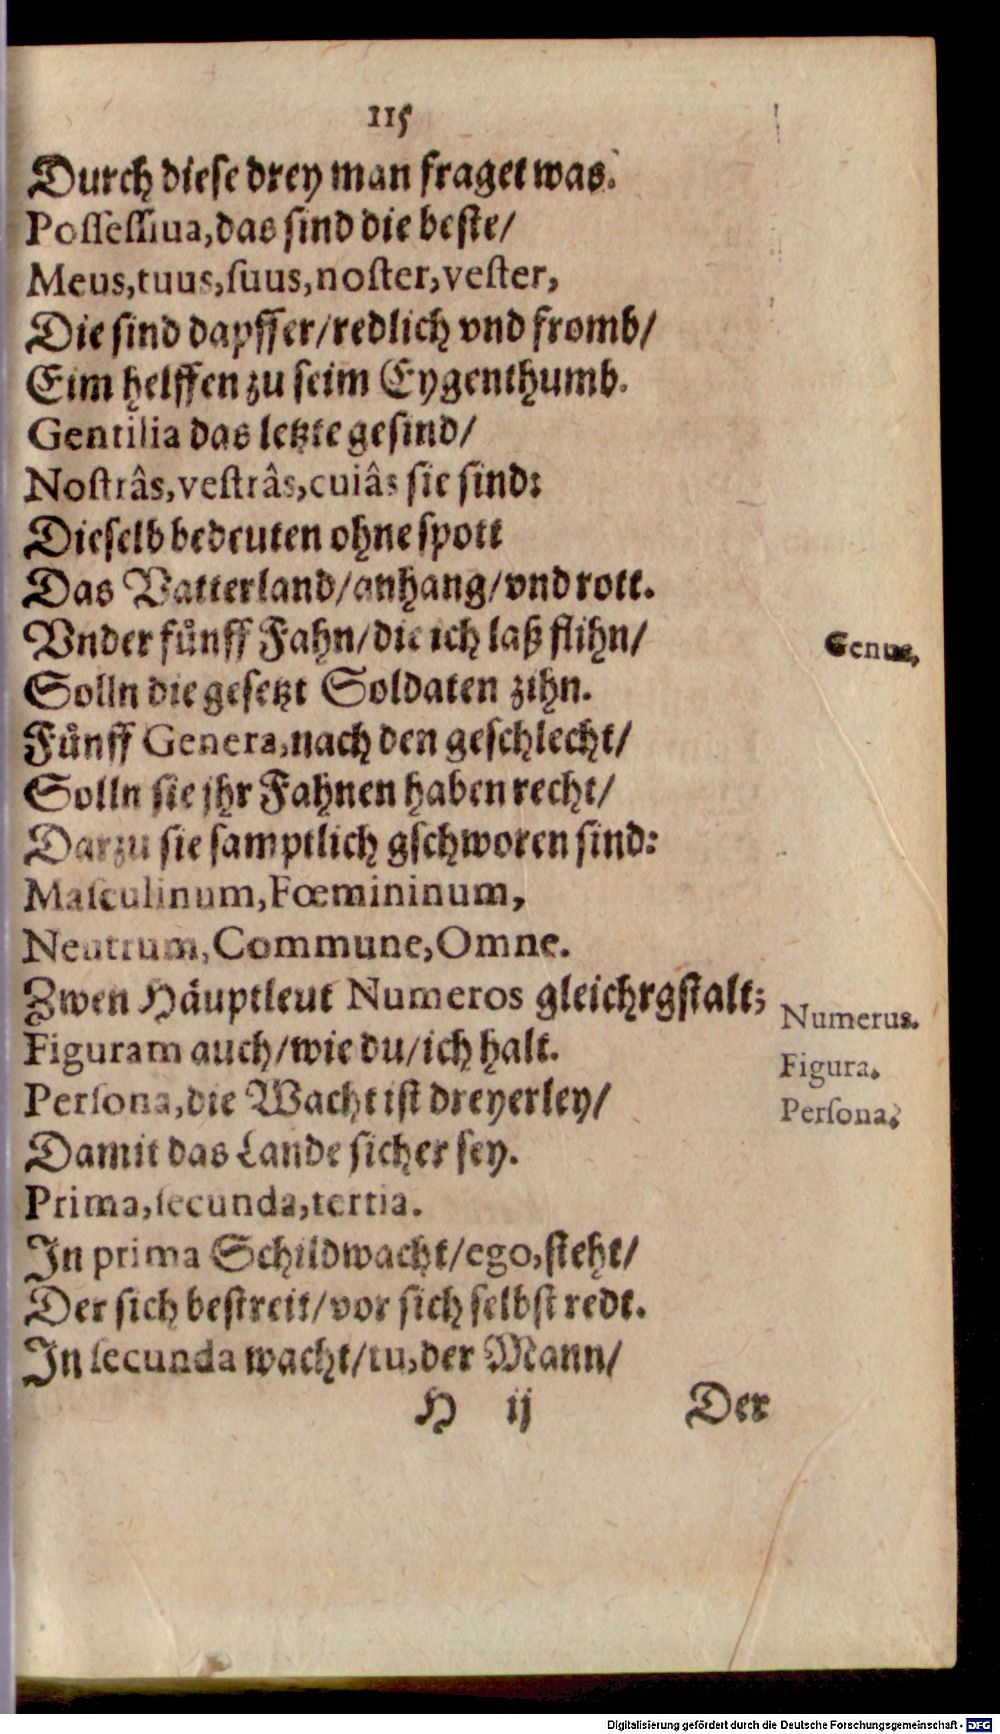 115
Durch diese drey man fraget was.
Possessiua, das sind die beste/
Meus, tuus, suus, noster, vester,
Die sind dapffer/redlich vnd fromb/
Eim helffen zu seim Eygenthumb.
Gentilia das letzte gesind/
Nostrâs, vestrâs, cuiâs sie sind:
Dieselb bedeuten ohne spott
Das Vatterland/anhang/vnd rott.
Vnder fünff Fahn/die ich laß flihn/
Genus,
Solln die gesetzt Soldaten zihn.
Fünff Genera, nach den geschlecht/
Solln sie jhr Fahnen haben recht/
Darzu sie samptlich gschworen sind:
Masculinum, Fœmininum,
Neutrum, Commune, Omne.
Zwen Häuptleut Numeros gleichrgstalt;
Numerus.
Figuram auch/wie du/ich halt.
Figura.
Persona, die Wacht ist dreyerley/
Persona.
Damit das Lande sicher sey.
Prima, secunda, tertia.
In prima Schildwacht/ego, steht/
Der sich bestreit/vor sich selbst redt.
In secunda wacht/tu, der Mann/
H ij Der
Digitalisierung gefördert durch die Deutsche Forschungsgemeinschaft - DFG